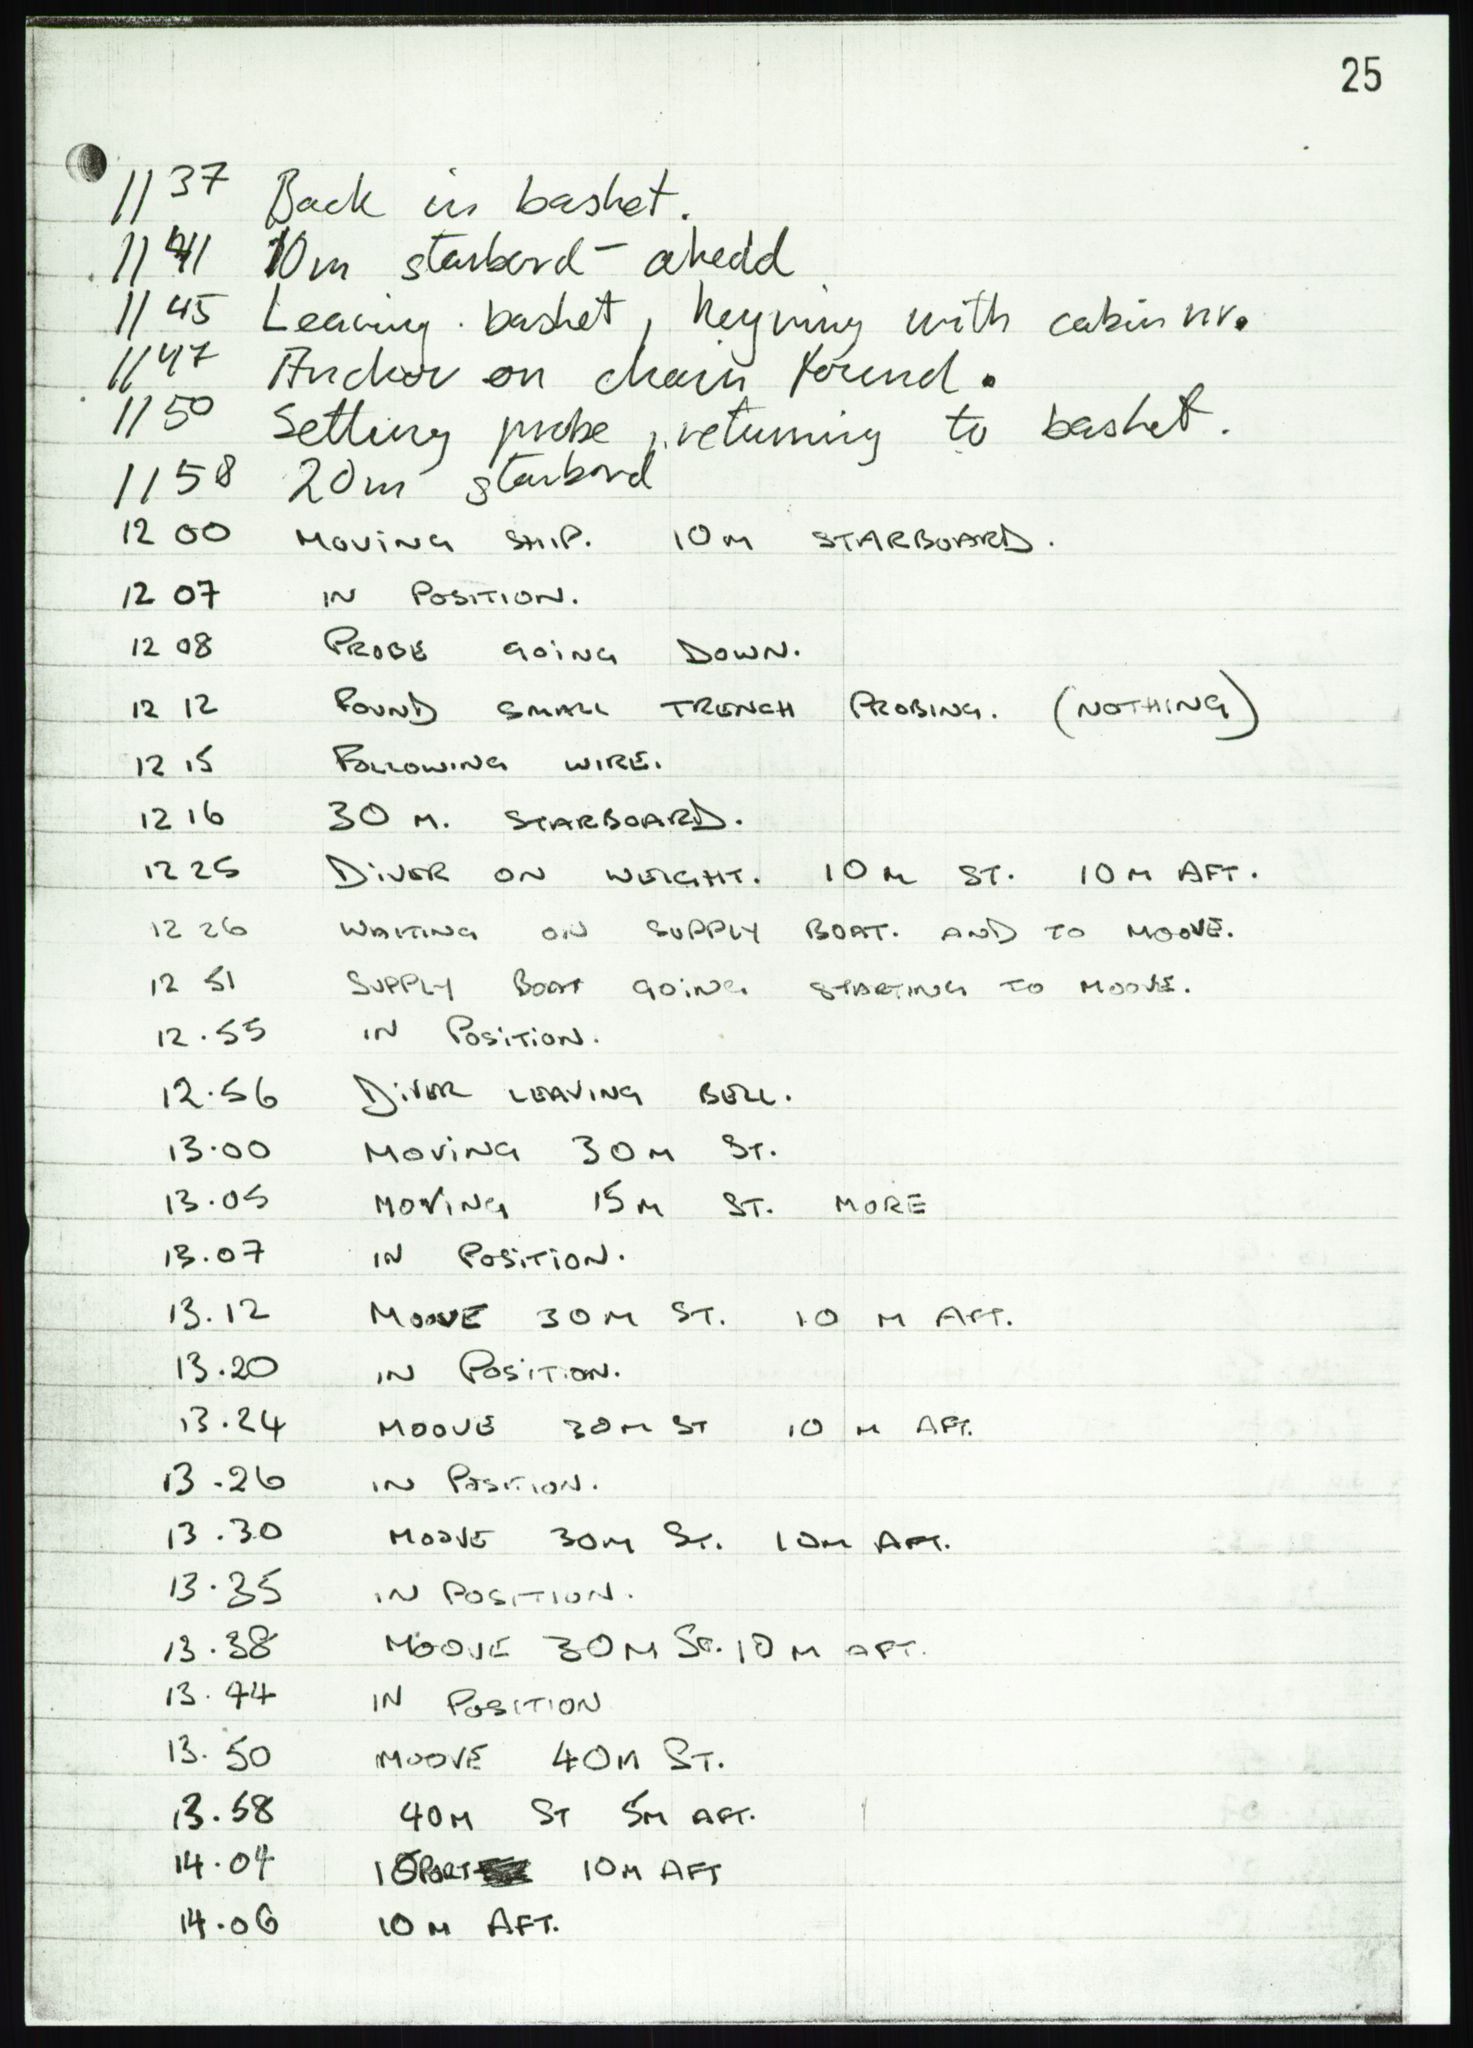 25
1137 Back in basket.
1141 10m starbord - ahedd
1145 Leaving basket, with cabin nr.
1147 Anckor on chain found.
1150 Setting probe, returning to basket.
1158 20m starbord
12 00 MOVING SHIP. 10M STARBOARD.
12 07 IN POSITION.
12 08 PROBE GOING DOWN.
12 12 FOUND SMALL TRENCH PROBING. (NOTHING)
12 15 FOLLOWING WIRE.
12 16 30 M. STARBOARD.
12 25 DIVER ON WEIGHT. 10M ST. 10M AFT.
12 26 WAITING ON SUPPLY BOAT. AND TO MOOVE.
12 51 SUPPLY BOAT GOING STARTING TO MOOVE.
12.55 IN POSITION.
12.56 DIVER LEAVING BELL.
13.00 MOVING 30M ST.
13.05 MOVING 15M ST. MORE
13.07 IN POSITION.
13.12 MOOVE 30M ST. 10 M AFT.
13.20 IN POSITION.
13.24 MOOVE 30M ST 10 M AFT.
13.26 IN POSITION.
13.30 MOOVE 30M ST. 10M AFT.
13.35 IN POSITION.
13.38 MOOVE 30M ST. 10M AFT.
13.44 IN POSITION
13.50 MOOVE 40M ST.
13.58 40M ST 5M AFT.
14.04 PORT 10M AFT
14.06 10M AFT.